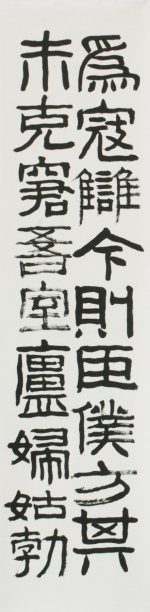 為寇讎今則臣僕方其
未克窘吾室廬婦姑勃